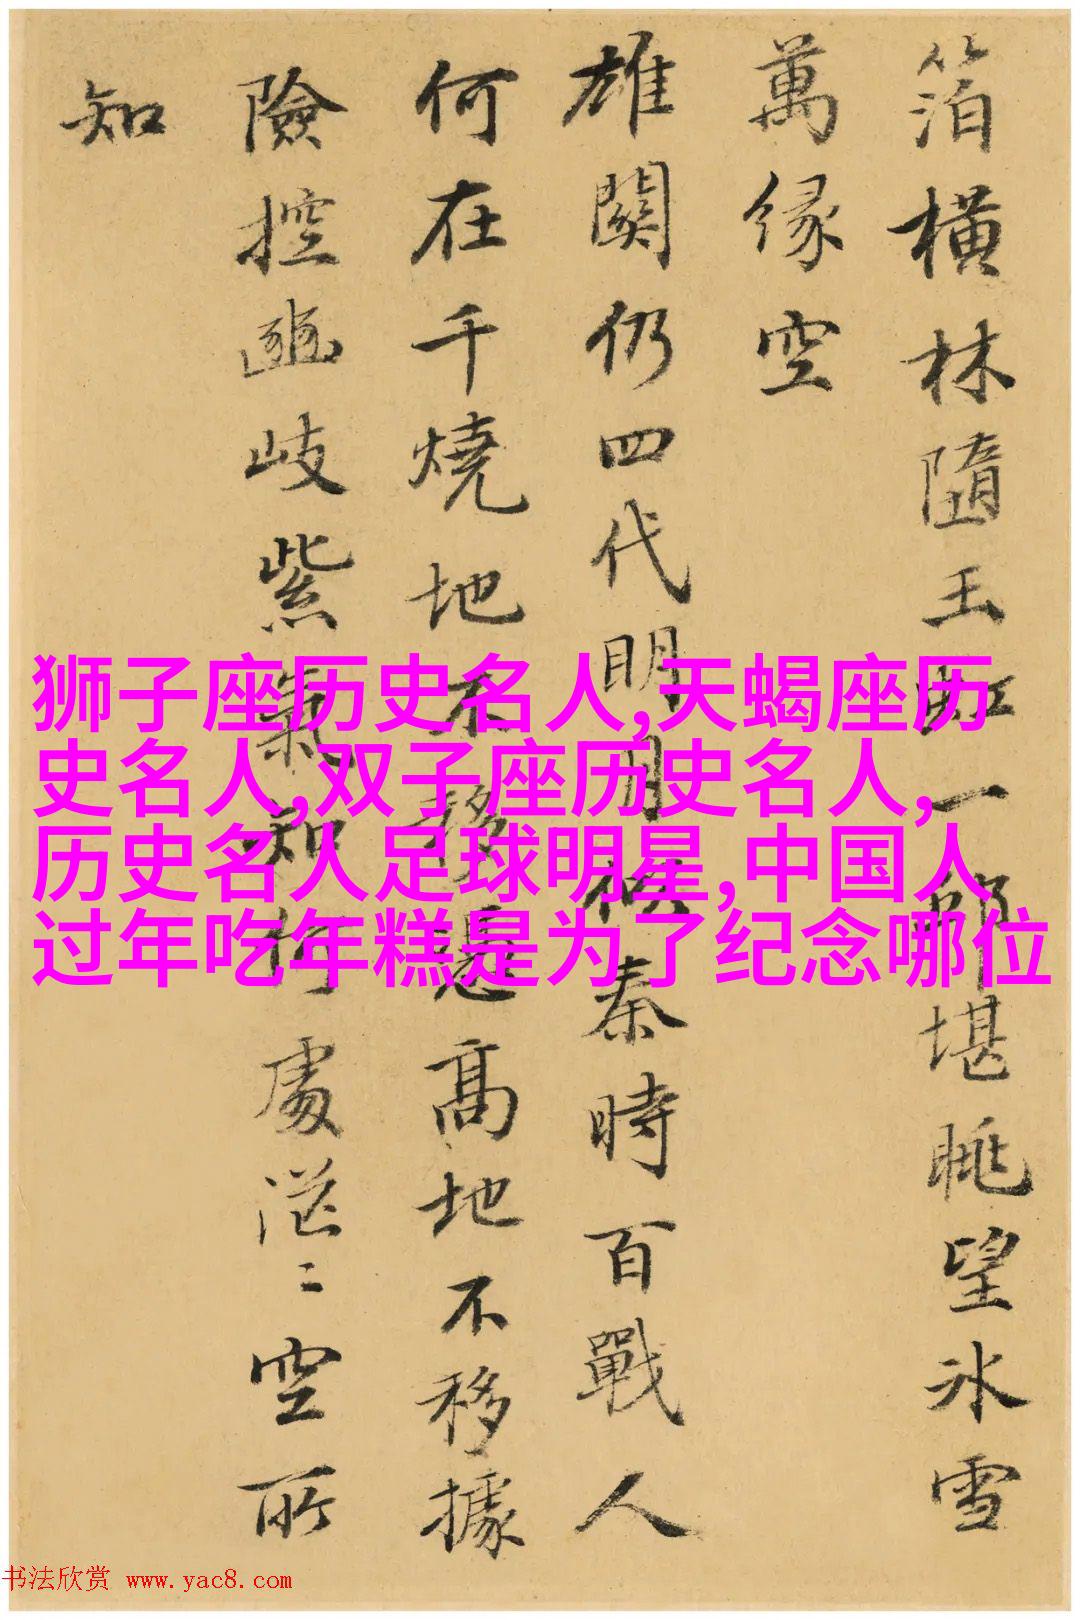 箔橫林隨玉虹一部堪眺望冰雪
萬緣空
雄關仍四代明月似秦時百戰人
何在千燒地不移悬高地不移據
險控豳岐紫氣知何處茫〻空所
知
狮子座历史名人,天蝎座历
史名人,双子座历史名人,
历史名人足球明星,中国人
过年吃年糕是为了纪念哪位
书法欣赏 www.yac8.com